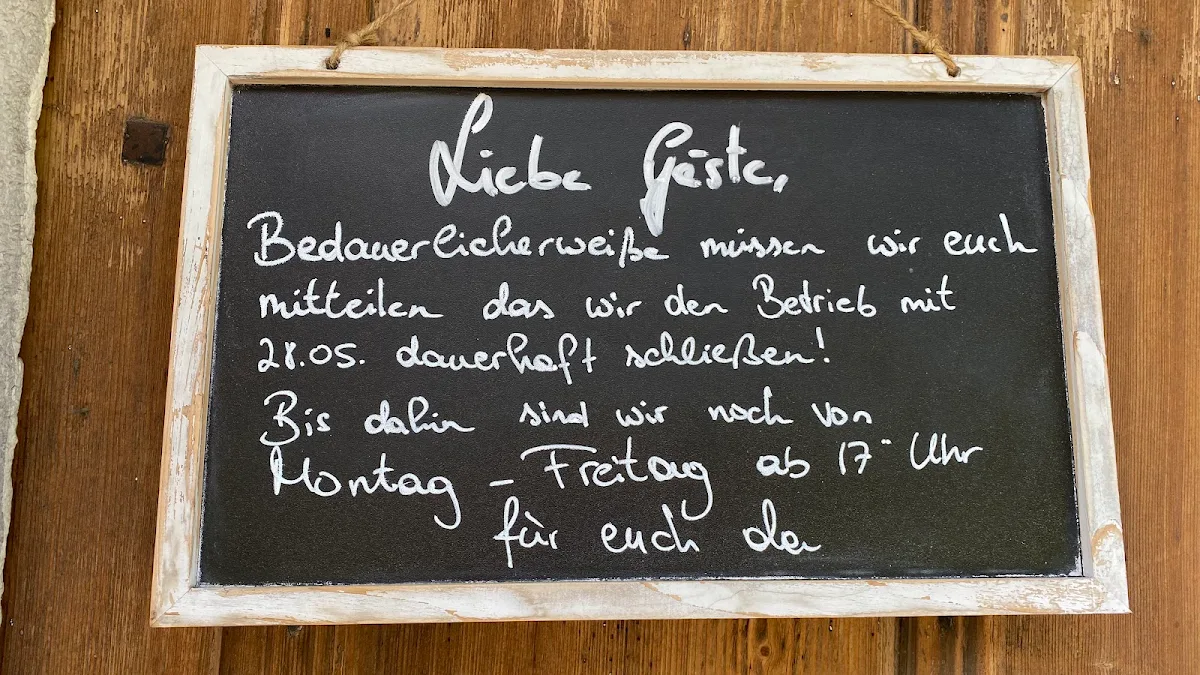 Liebe Gäste,
Bedauerlicherweiße müssen wir euch
mitteilen das wir den Betrieb mit
28.05. dauerhaft schließen!
Bis dahin sind wir noch von
Montag - Freitag ab 17°° Uhr
für euch da